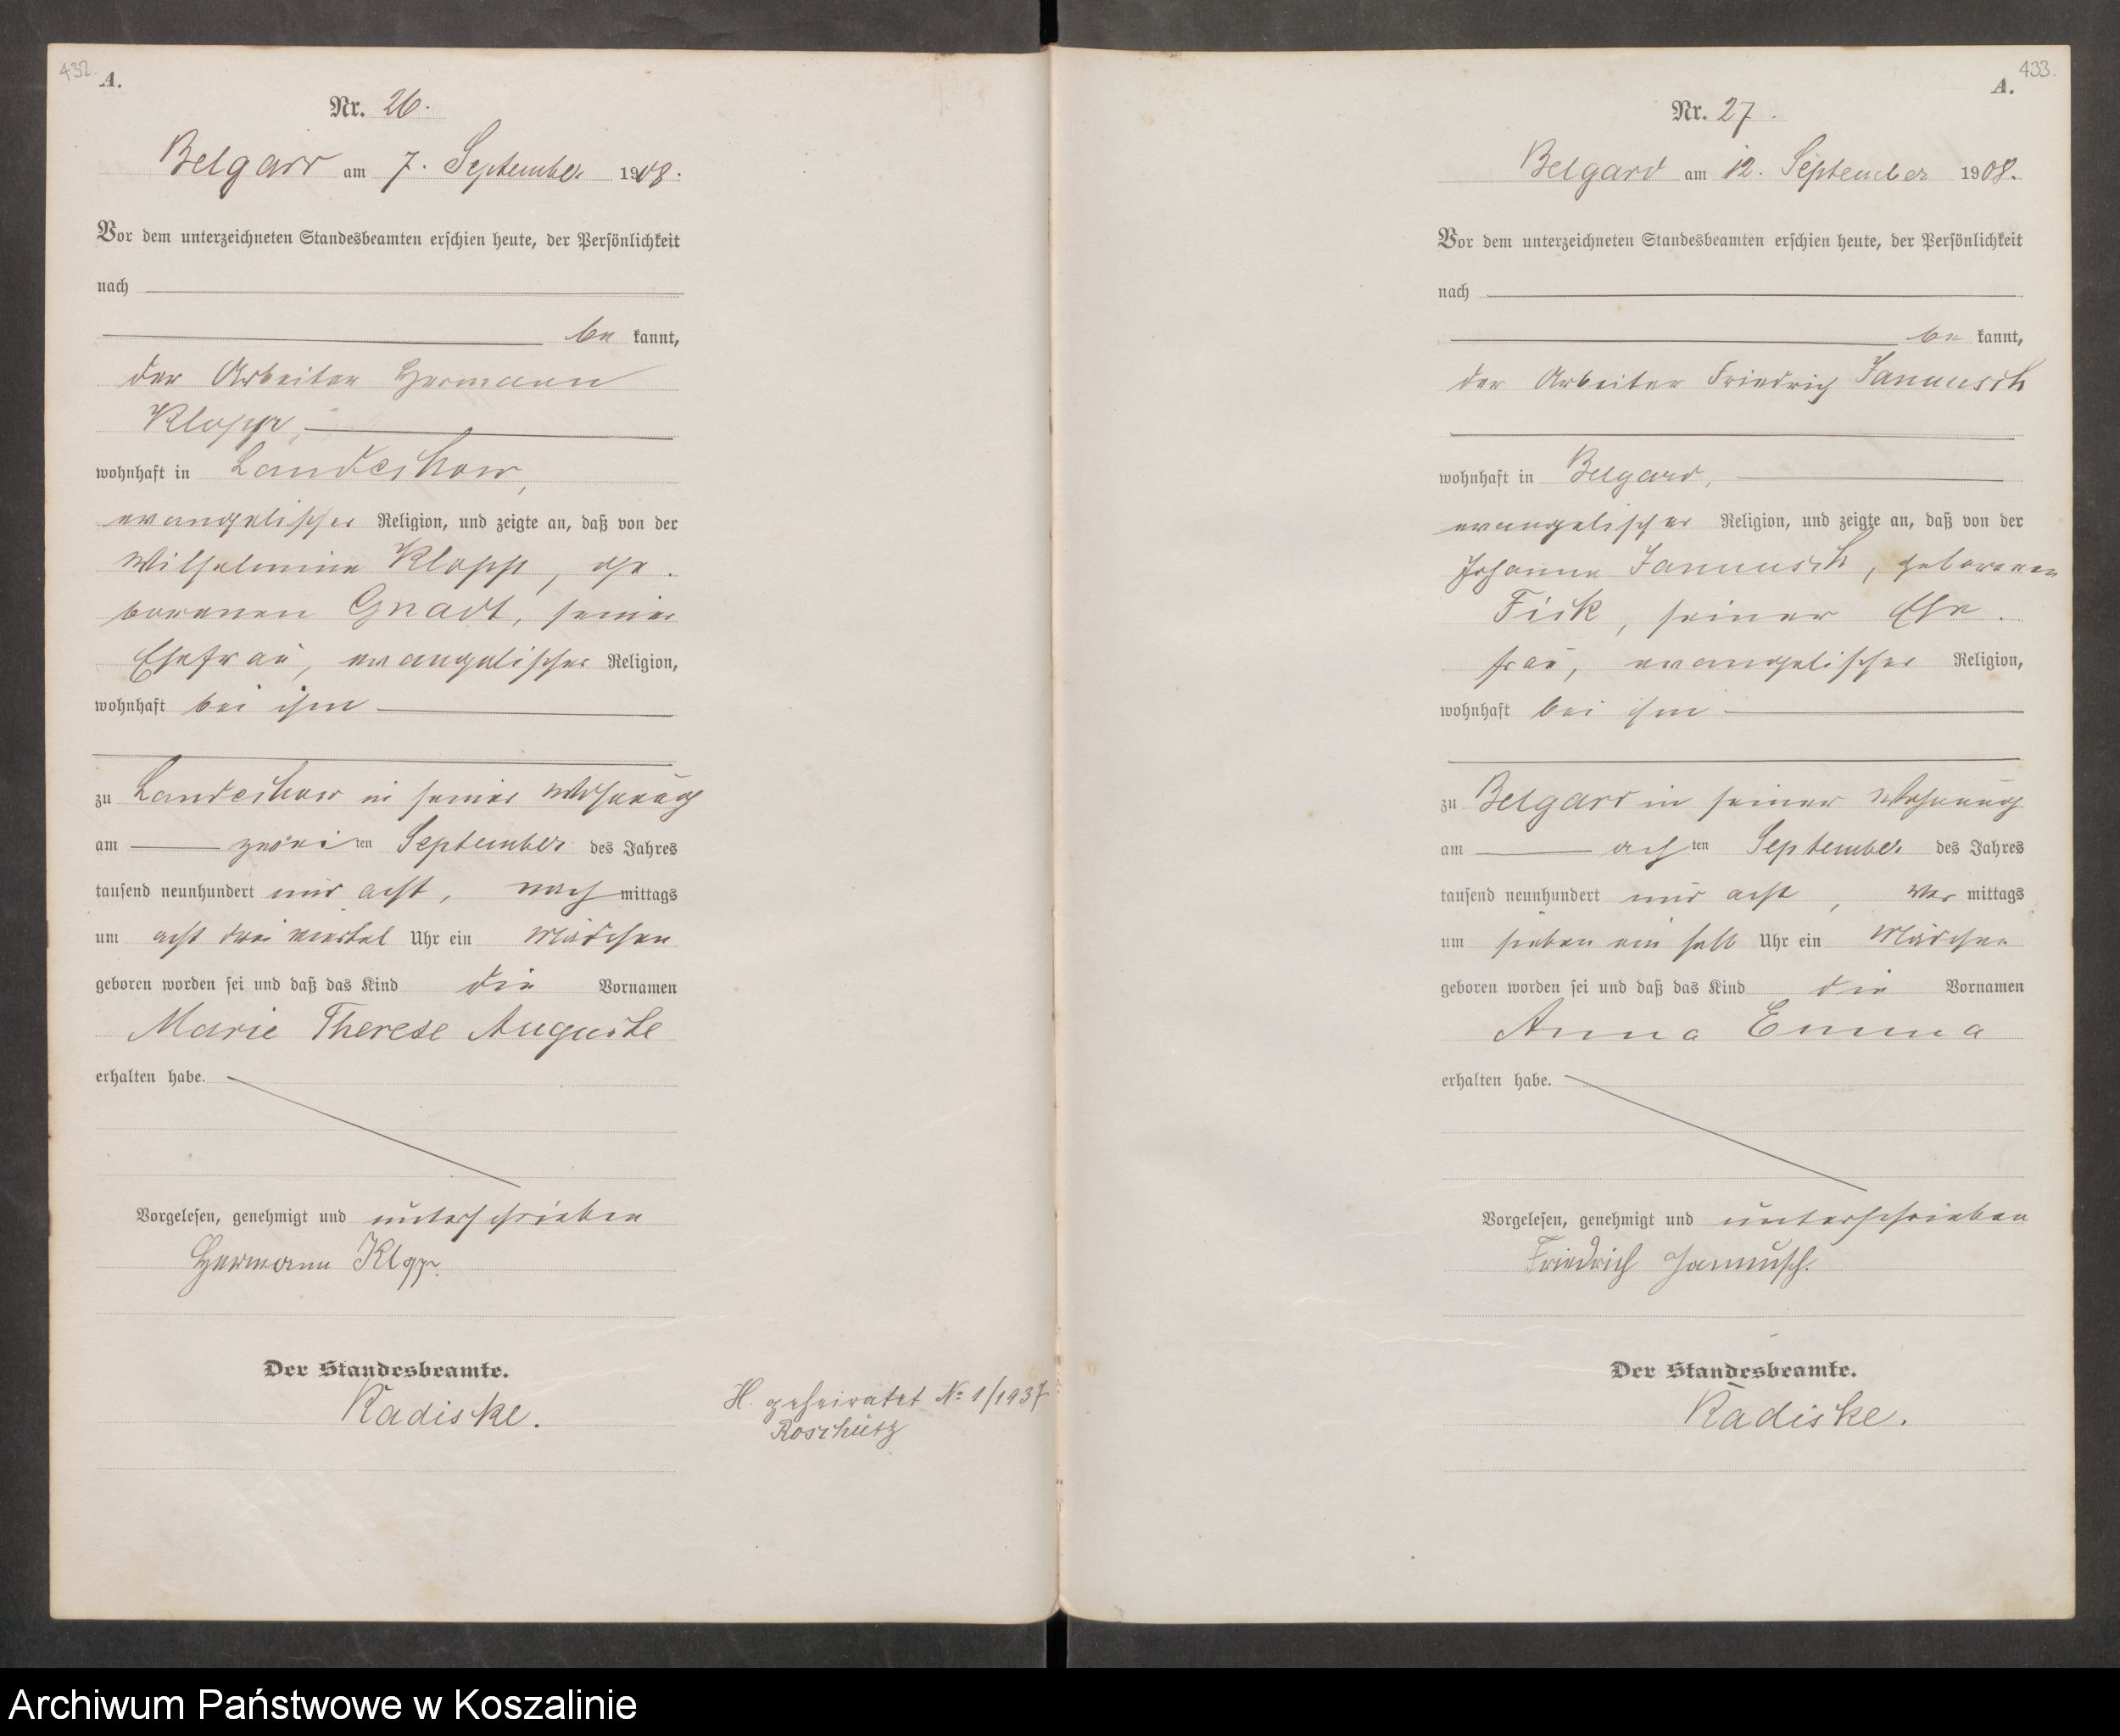 432.
A.
Nr. 26.
Belgard am 7. September 1908.
Vor dem unterzeichneten Standesbeamten erschien heute, der Persönlichkeit
nach
be kannt,
der Arbeiter Hermann
Klopp,
wohnhaft in Landechow,
evangelischer Religion, und zeigte an, daß von der
Wilhelmine Klopp, ge-
borenen Gnadt, seiner
Ehefrau, evangelischer Religion,
wohnhaft bei ihm
zu Landechow in seiner Wohnung
am zwei ten September des Jahres
tausend neunhundert und acht, nach mittags
um acht drei viertel Uhr ein Mädchen
geboren worden sei und daß das Kind die Vornamen
Marie Therese Auguste
erhalten habe.
Vorgelesen, genehmigt und unterschrieben
Hermann Klopp.
Der Standesbeamte.
Radiske.
H. geheiratet No 1/1937
Roschütz
433.
A.
Nr. 27.
Belgard am 12. September 1908.
Vor dem unterzeichneten Standesbeamten erschien heute, der Persönlichkeit
nach
be kannt,
der Arbeiter Friedrich Jannusch
wohnhaft in Belgard,
evangelischer Religion, und zeigte an, daß von der
Johanne Jannusch, geborenen
Fick, seiner Ehe-
frau, evangelischer Religion,
wohnhaft bei ihm
zu Belgard in seiner Wohnung
am ach ten September des Jahres
tausend neunhundert und acht, vor mittags
um sieben ein halb Uhr ein Mädchen
geboren worden sei und daß das Kind die Vornamen
Anna Emma
erhalten habe.
Vorgelesen, genehmigt und unterschrieben
Friedrich Jannusch.
Der Standesbeamte.
Radiske.
Archiwum Państwowe w Koszalinie